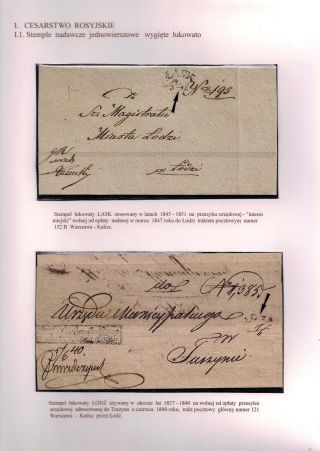 I. CESARSTWO ROSYJSKIE
I.1. Stemple nadawcze jednowierszowe wygięte łukowato
Do
Sz: Magistratu
Miasta Łodzi
w Łodzi
Stempel łukowaty LASK stosowany w latach 1845 - 1851 na przesyłce urzędowej - "interes
miejski" wolnej od opłaty nadanej w marcu 1847 roku do Łodzi traktem pocztowym numer
152 B Warszawa - Kalisz.
do
№ 1,385
Urzędu Municypalnego
w
Tuszynie
Stempel łukowaty ŁÓDŹ używany w okresie lat 1837 - 1840 na wolnej od opłaty przesyłce
urzędowej adresowanej do Tuszyna z czerwca 1840 roku, trakt pocztowy główny numer 121
Warszawa - Kalisz przez Łódź.